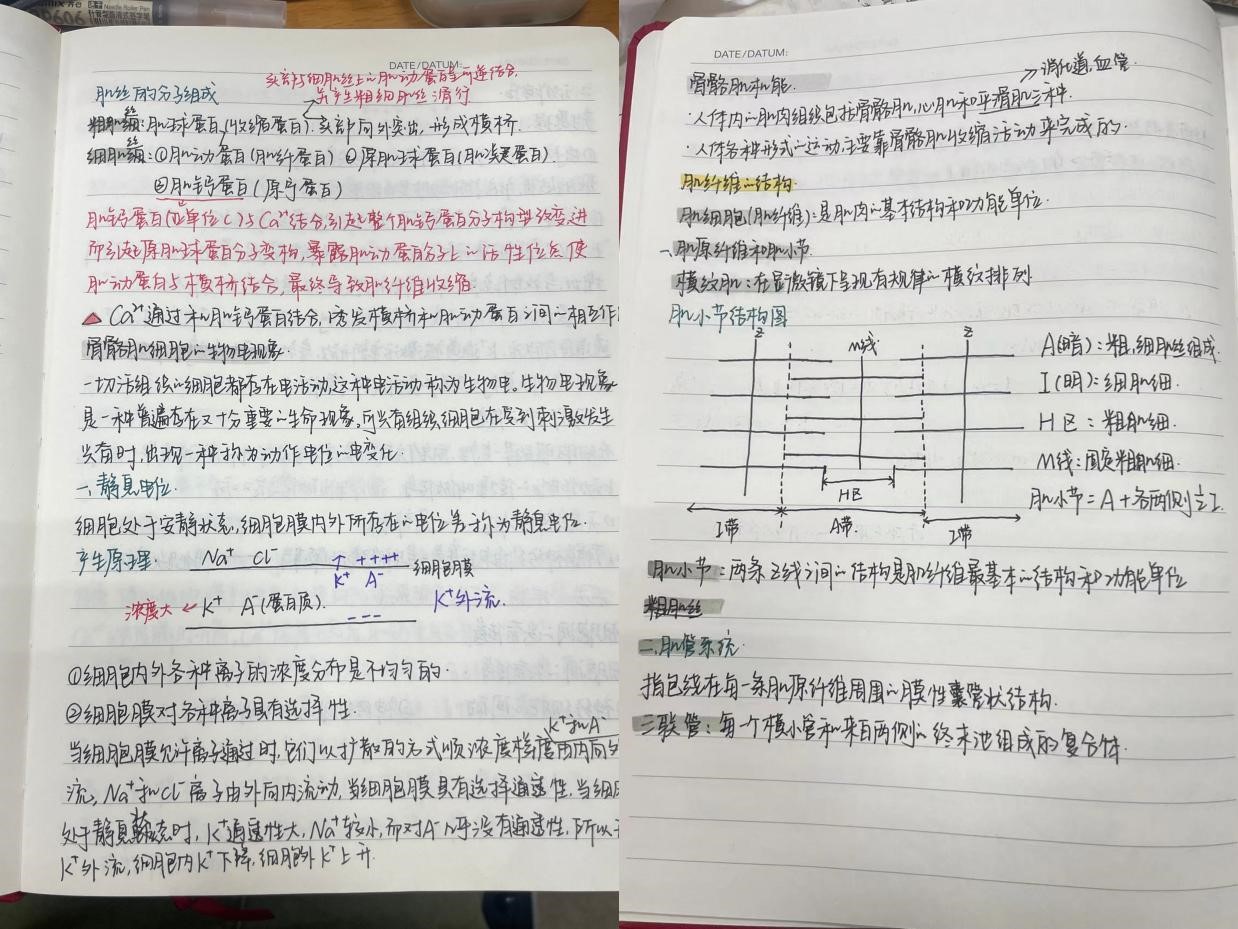 Needle Roller Pen
DATE/DATUM:
头部与细肌丝上的肌动蛋白呈可逆结合,
并产生粗细肌丝滑行
肌丝的分子组成
粗肌丝:肌球蛋白(收缩蛋白).头部向外突出,形成横桥.
细肌丝:①肌动蛋白(肌纤蛋白) ②原肌球蛋白(肌浅蛋白)
③肌钙蛋白(原宁蛋白)
肌钙蛋白(亚单位C)与Ca²⁺结合,引起整个肌钙蛋白分子构型改变,进
而引起原肌球蛋白分子变构,暴露肌动蛋白分子上的活性位点,使
肌动蛋白与横桥结合,最终导致肌纤维收缩.
▲ Ca²⁺通过和肌钙蛋白结合,诱发横桥和肌动蛋白之间的相互作
骨骼肌细胞的生物电现象.
一切活组织的细胞都存在电活动,这种电活动称为生物电。生物电现象
是一种普遍存在又十分重要的生命现象。可兴奋组织细胞在受到刺激发生
兴奋时,出现一种称为动作电位的电变化.
一、静息电位.
细胞处于安静状态,细胞膜内外所存在的电位差称为静息电位.
产生原理: Na⁺ Cl⁻ ↑ ++++
K⁺ A⁻ 细胞膜
浓度大 ← K⁺ A⁻(蛋白质). --- K⁺外流.
①细胞内外各种离子的浓度分布是不均匀的.
②细胞膜对各种离子具有选择性.
K⁺和A⁻
当细胞膜允许离子通过时,它们以扩散的方式顺浓度梯度由内向
流, Na⁺和Cl⁻离子由外向内流动,当细胞膜具有选择通透性,当细
处于静息状态时, K⁺通透性大, Na⁺较小,而对A⁻几乎没有通透性,所以
K⁺外流,细胞内K⁺下降,细胞外K⁺上升.
DATE/DATUM:
骨骼肌机能.
→消化道,血管.
·人体内的肌肉组织包括骨骼肌,心肌和平滑肌三种.
·人体各种形式的运动主要靠骨骼肌收缩活动来完成的.
肌纤维的结构
肌细胞(肌纤维):是肌肉的基本结构和功能单位.
一、肌原纤维和肌小节.
横纹肌:在显微镜下呈现有规律的横纹排列
肌小节结构图
Z M线 Z
A(暗):粗,细肌丝组成.
I(明):细肌细.
H区:粗肌细.
M线:固定粗肌细.
H区
肌小节=A+各两侧½I.
I带 A带 I带
肌小节:两条Z线之间的结构是肌纤维最基本的结构和功能单位
粗肌丝
二、肌管系统.
指包绕在每一条肌原纤维周围的膜性囊管状结构.
三联管:每一个横小管和来自两侧的终末池组成的复合体.